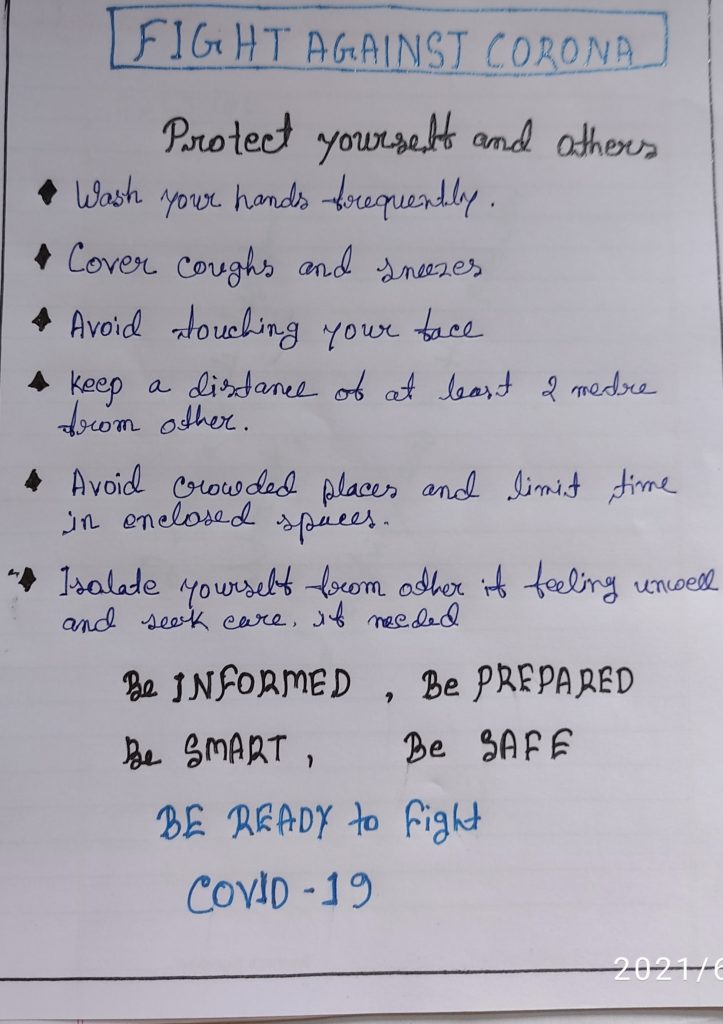 FIGHT AGAINST CORONA
Protect yourself and others
Wash your hands frequently.
Cover coughs and sneezes
Avoid touching your face
Keep a distance of at least 2 metre
from other.
Avoid crowded places and limit time
in enclosed spaces.
Isolate yourself from other if feeling unwell
and seek care, if needed
Be INFORMED , Be PREPARED
Be SMART , Be SAFE
BE READY to Fight
COVID-19
2021/6